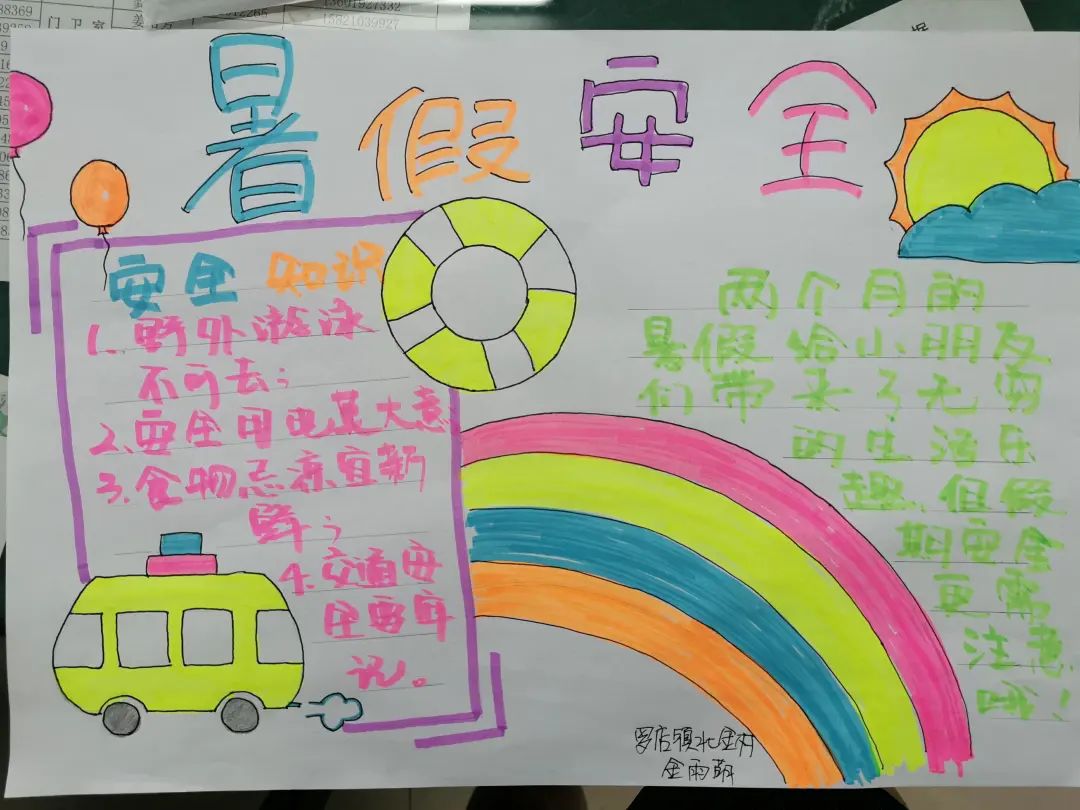 88369
门卫室
暑假安全
安全知识
1.野外游泳
不可去;
2.安全用电莫大意
3.食物忌凉宜新
鲜;
4.交通安
全要牢
记。
两个月的
暑假给小朋友
们带来了无穷
的生活乐
趣,但假
期安全
更需
注意
哦!
罗店镇北金村
金雨萌